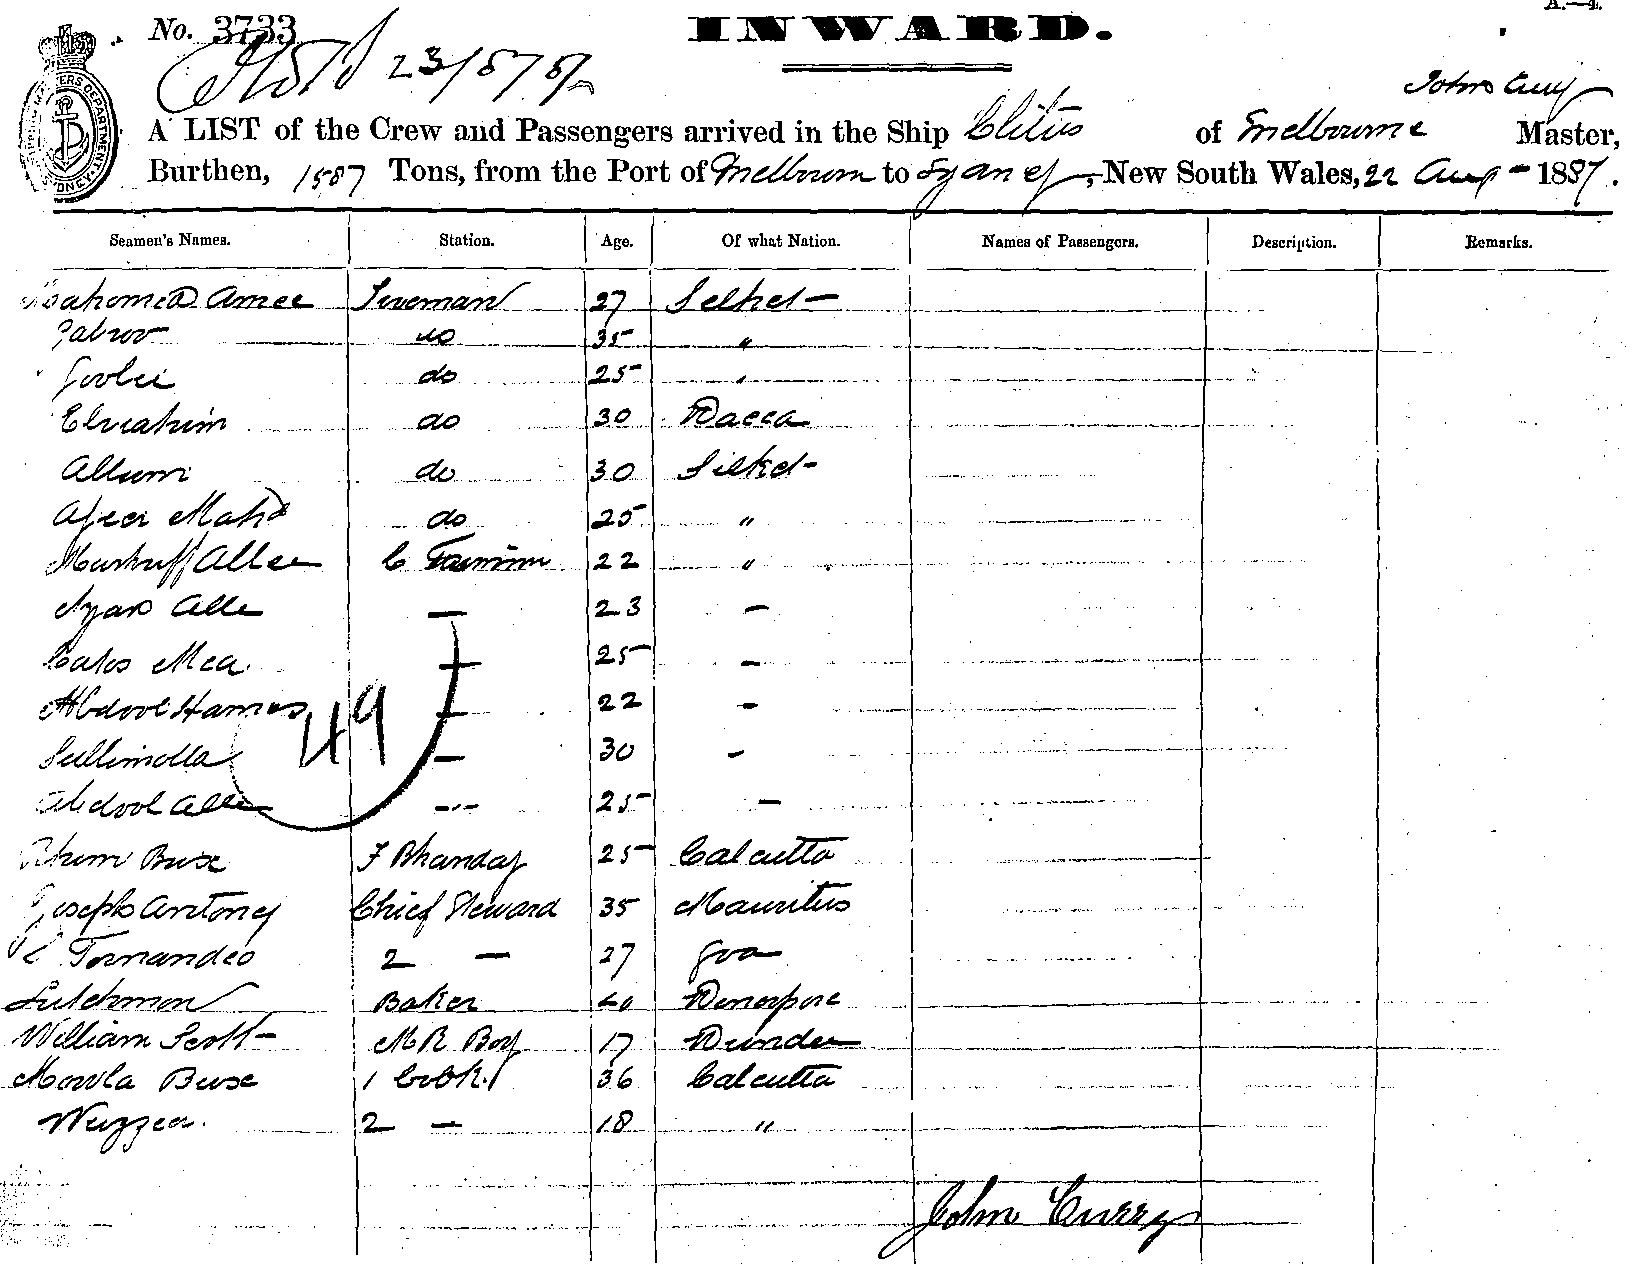 A.—4.
No. 3733
INWARD.
23/8/87
John Curry
A LIST of the Crew and Passengers arrived in the Ship Clitus of Melbourne Master,
Burthen, 1587 Tons, from the Port of Melbourn to Sydney, New South Wales, 22 Aug 1887.
Seamen's Names. Station. Age. Of what Nation. Names of Passengers. Description. Remarks.
Mahomed Amee Fireman 27 Selhet
Jabror do 35 "
Goolei do 25 "
Ebrahim do 30 Dacca
Allum do 30 Silhet
Afeer Mahd do 25 "
Mushruff Allee C 22 "
Ayar Alle — 23 —
Calos Mea — 25 —
Abdool Hamed — 22 —
Sullimolla — 30 —
Abdool Allee — 25 —
49
Rhim Buse F Bhanday 25 Calcutta
Joseph Antoney Chief Steward 35 Mauritus
Fernandes 2 — 27 Goa
Lutchmon Baker 40 Denarpore
William Scott M R Boy 17 Dundee
Mowla Buse 1 Cook 36 Calcutta
Wuzzea. 2 — 18 "
John Curry